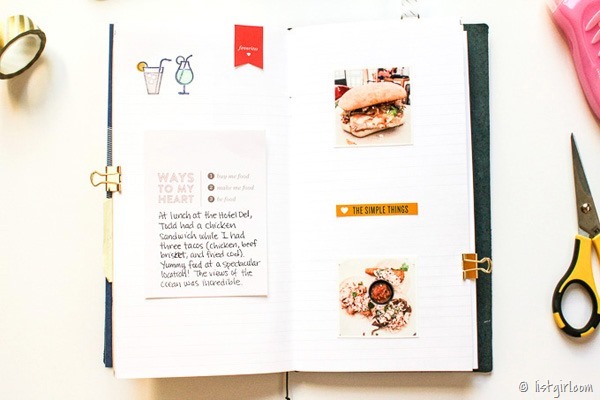 favorites
WAYS
TO MY
HEART
1 buy me food
2 make me food
3 be food
At lunch at the Hotel Del,
Todd had a chicken
sandwich while I had
three tacos (chicken, beef
brisket, and fried cod).
Yummy food at a spectacular
location! The views of the
ocean was incredible.
THE SIMPLE THINGS
© listgirl.com